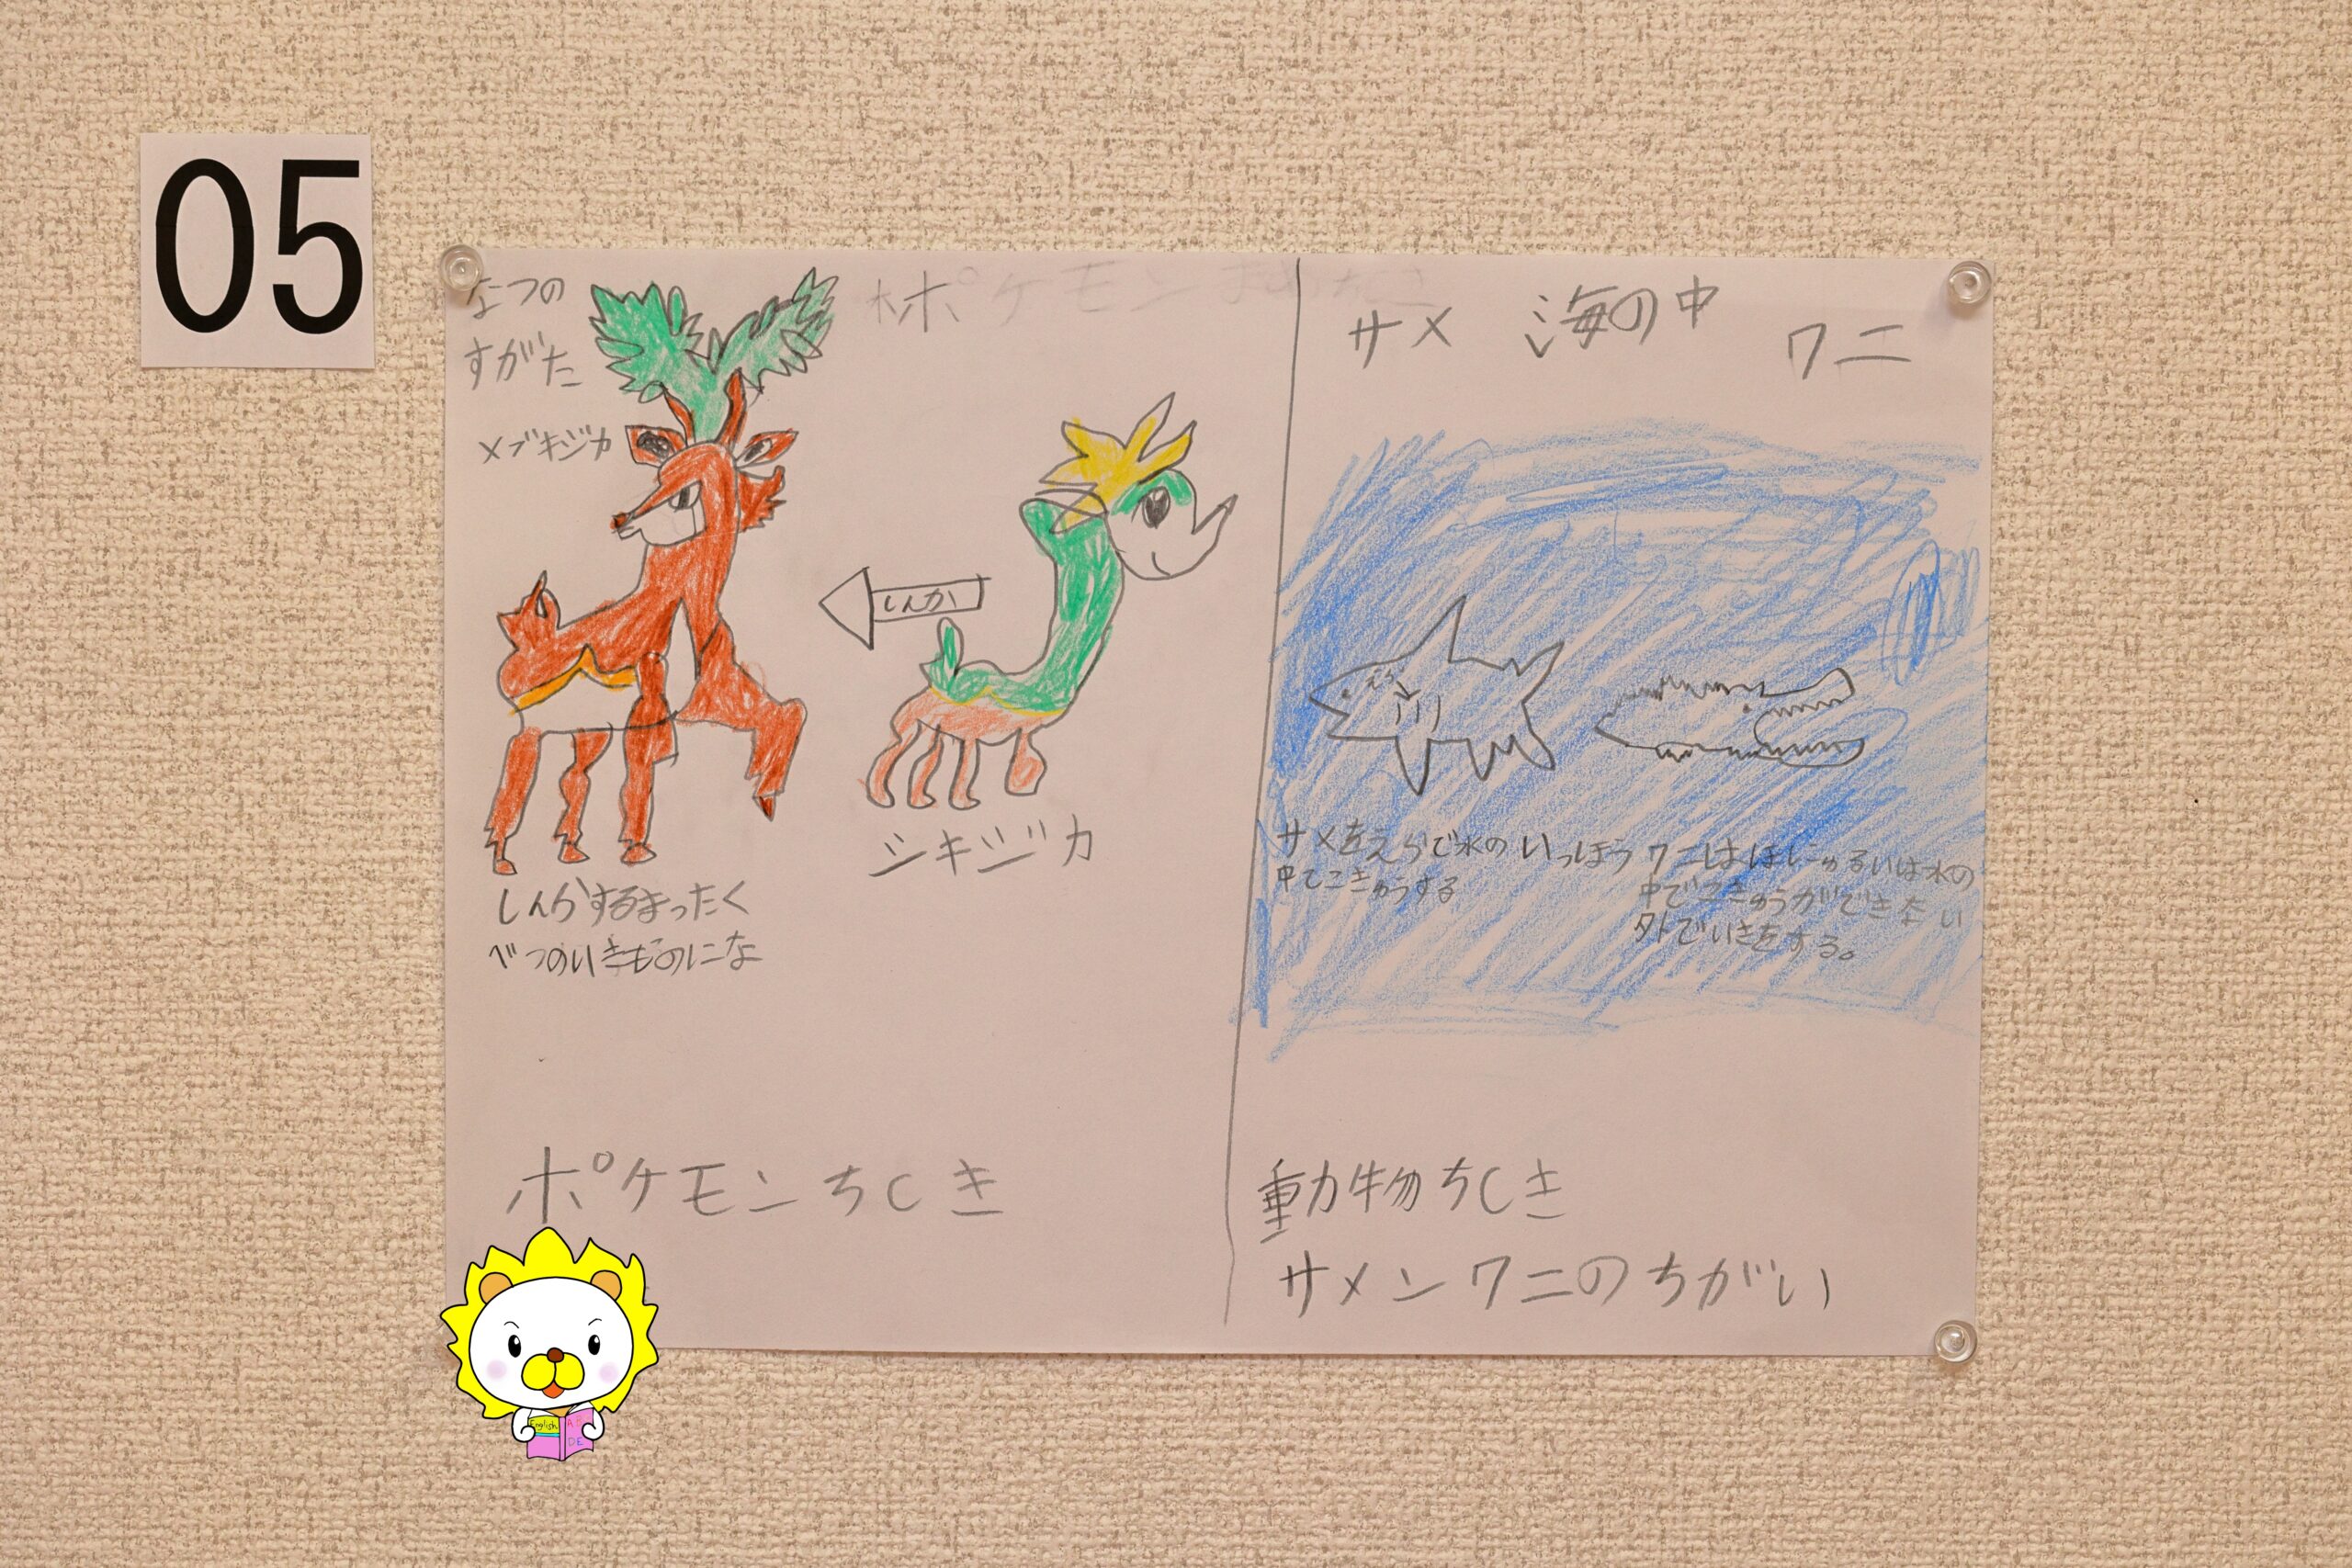 05
なつの
すがた
メブキジカ
ポケモン
しんか
シキジカ
しんかするまったく
べつのいきものにな
ポケモンちしき
サメ 海の中 ワニ
サメをえらで水の
中でこきゅうする
いっぽう ワニはほにゅるいは水の
中でこきゅうができない
外でいきをする。
動物ちしき
サメンワニのちがい
English
A B
DE